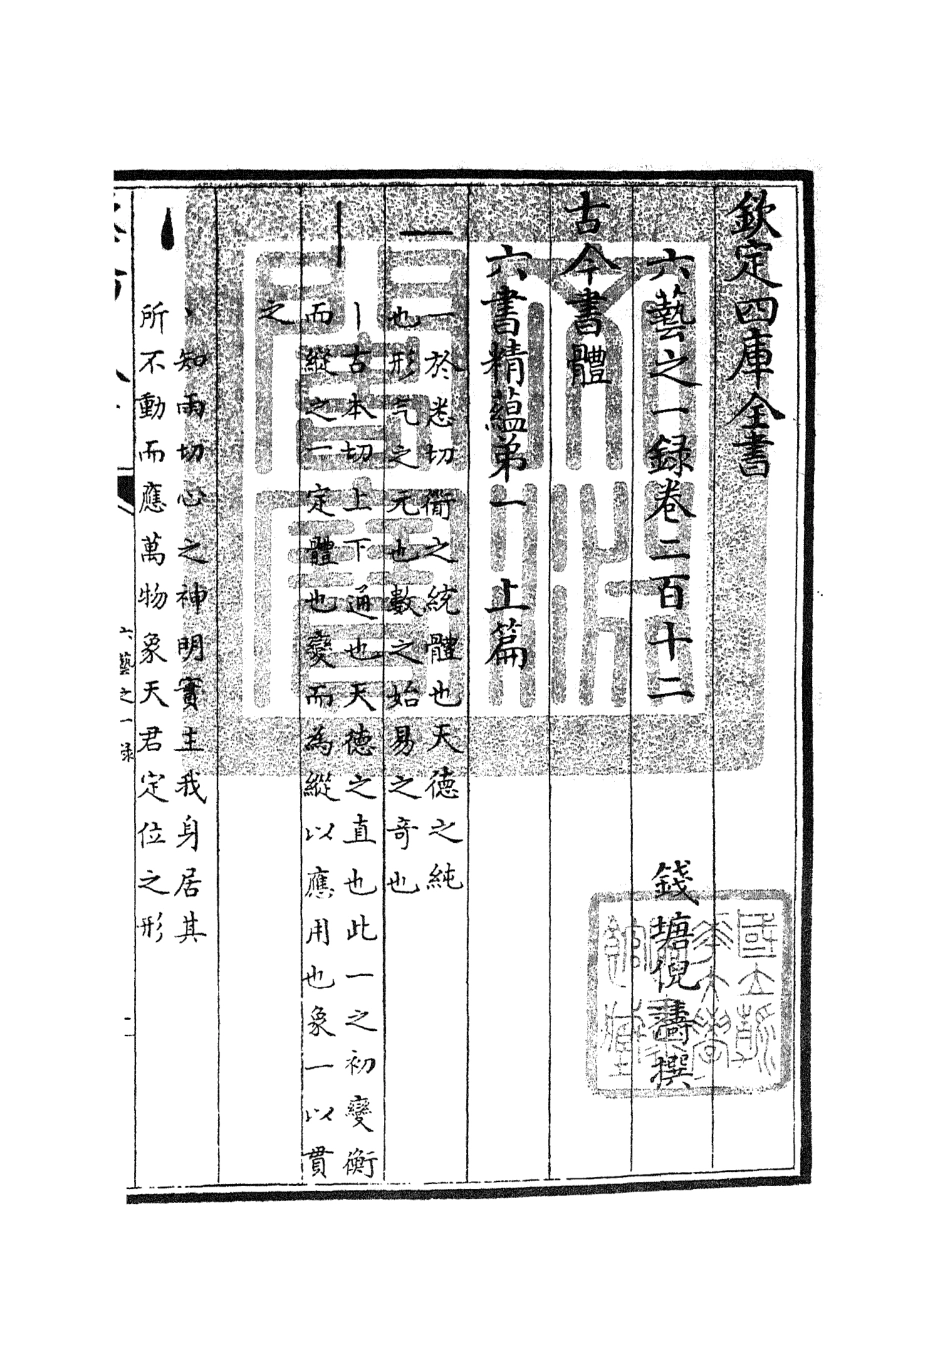 欽定四庫全書
六藝之一録卷二百十二
錢塘倪濤撰
古今書體
六書精蘊弟一 上篇
一
一於悉切衟之統體也天德之純
也形气之元也數之始易之奇也
丨
丨古本切上下通也天德之直也此一之初變衡
而縱之一定體也變而為縱以應用也象一以貫
之
丶
丶知雨切心之神明實主我身居其
所不動而應萬物象天君定位之形
六藝之一録